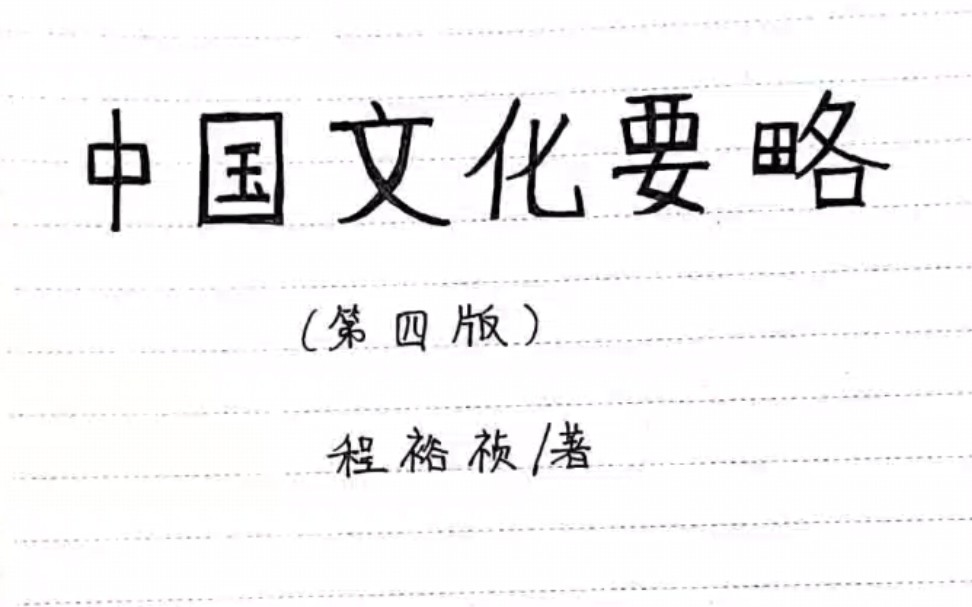 中国文化要略
(第四版)
程裕祯/著